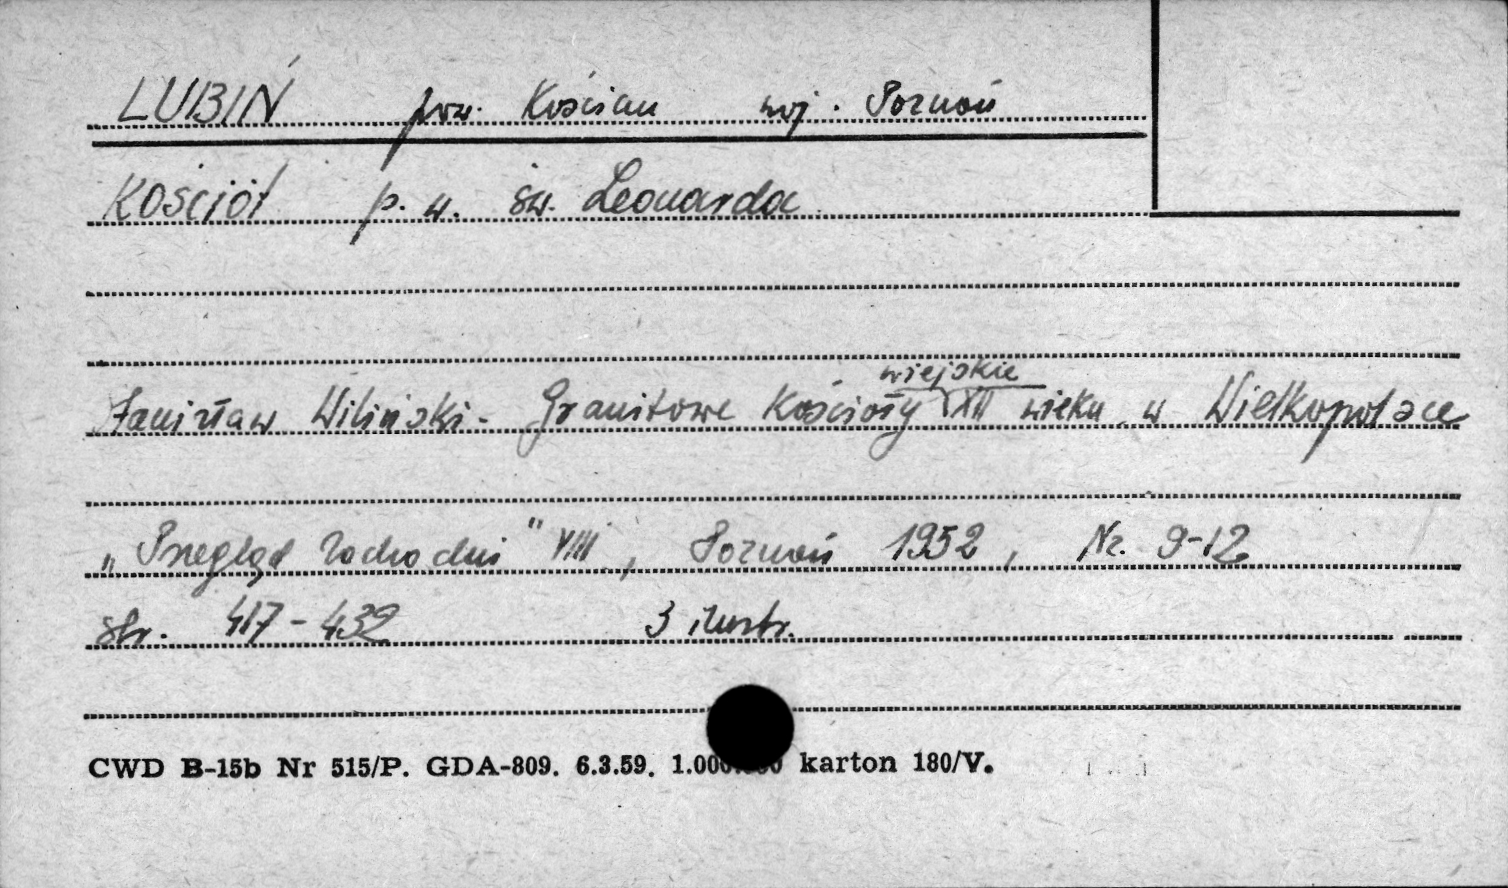 LUBIŃ pow. Kościan woj. Poznań
Kościół p. w. św. Leonarda
Stanisław Wiliński - Granitowe Kościoły wiejskie XII wieku w Wielkopolsce
„Przegląd Zachodni" VIII, Poznań 1952, Nr. 9-12
str. 417-432 3 ilustr.
CWD B-15b Nr 515/P. GDA-809. 6.3.59. karton 180/V.